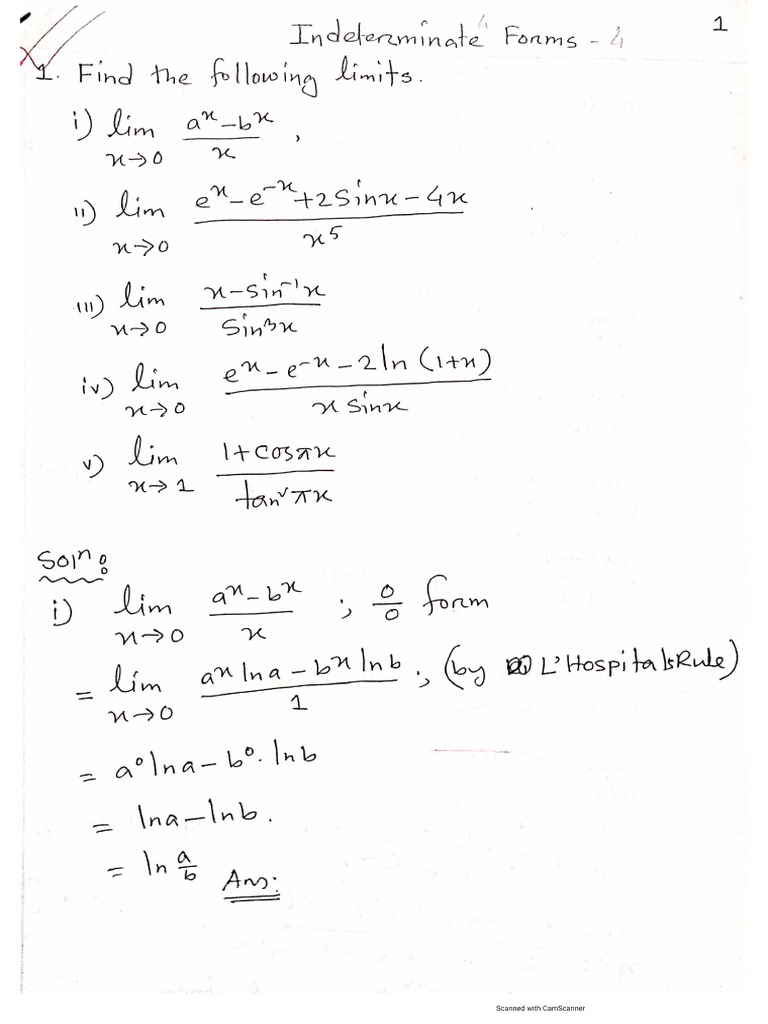 Indeterminate Forms - 4
1
1. Find the following limits.
i) lim x→0 (a^x - b^x)/x ,
ii) lim x→0 (e^x - e^-x + 2 Sinx - 4x)/x^5
iii) lim x→0 (x - Sin^-1 x)/Sin^3 x
iv) lim x→0 (e^x - e^-x - 2 ln (1+x))/(x sinx)
v) lim x→1 (1 + cosπx)/tan² πx
Soln:
i) lim x→0 (a^x - b^x)/x ; 0/0 form
= lim x→0 (a^x lna - b^x lnb)/1 ; (by L'Hospital's Rule)
= a^0 lna - b^0 . lnb
= lna - lnb.
= ln a/b Ans:
Scanned with CamScanner